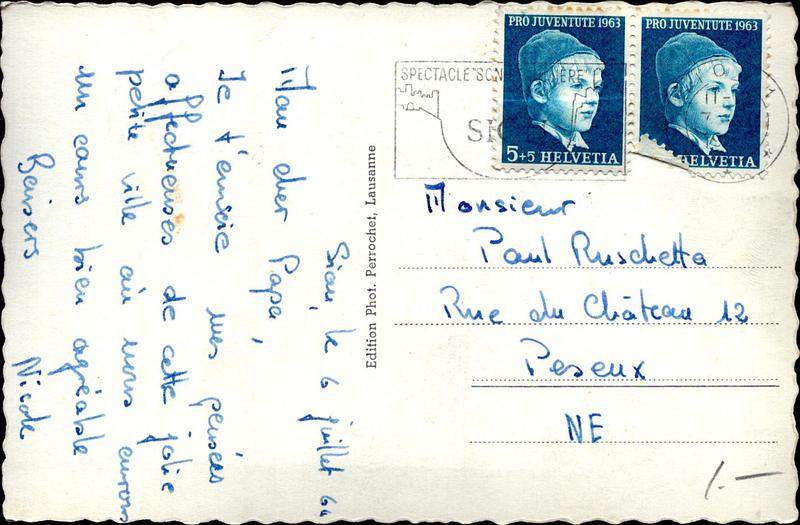 Sion, le 6 juillet 64
Mon cher Papa,
Je t'envoie mes pensées
affectueuses de cette jolie
petite ville où nous aurons
un cours bien agréable
Baisers
Nicole
Edition Phot. Perrochet, Lausanne
SPECTACLE "SON LUMIÈRE
PRO JUVENTUTE 1963
5+5 HELVETIA
PRO JUVENTUTE 1963
HELVETIA
Monsieur
Paul Ruschetta
Rue du Château 12
Peseux
NE
1.—